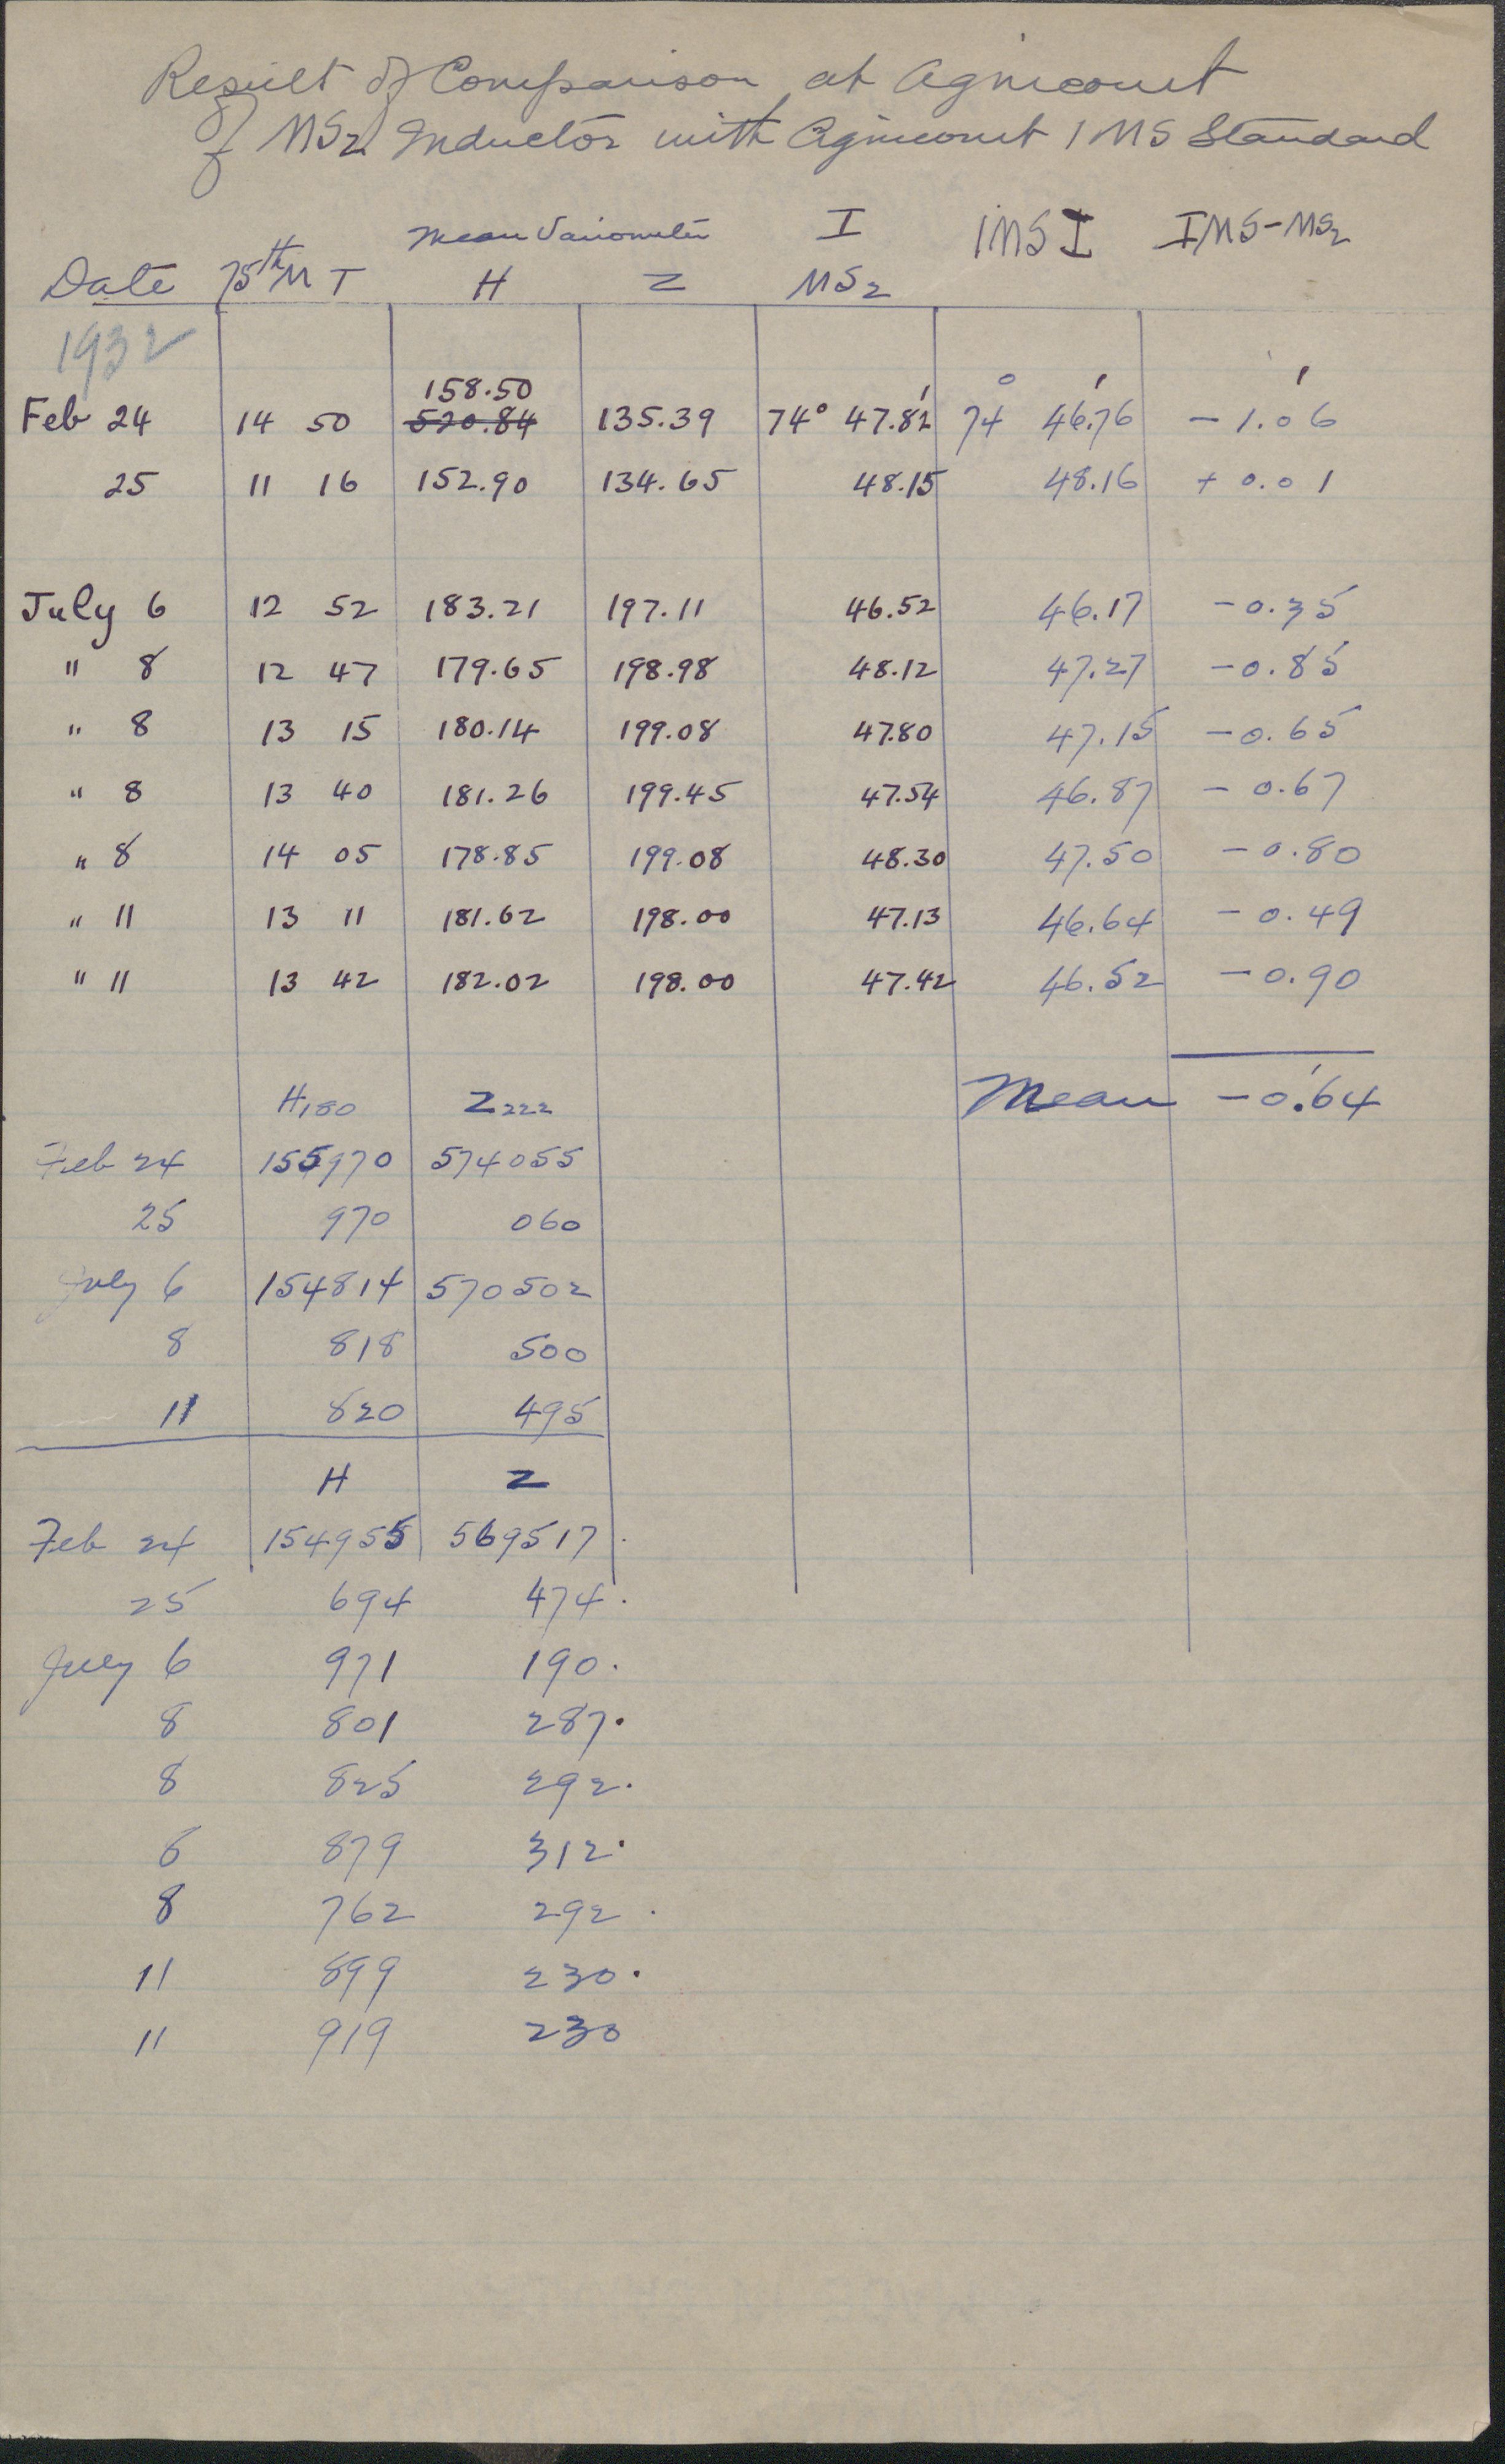 Result of Comparison at Agincourt
of MS2 Inductor with Agincourt IMS Standard
Mean Variometer I IMS I IMS-MS2
Date 75th M T H Z MS2
1932
158.50 ° ' '
Feb 24 14 50 520.84 135.39 74° 47.82' 74 46.76 - 1.06
25 11 16 152.90 134.65 48.15 48.16 + 0.01
July 6 12 52 183.21 197.11 46.52 46.17 - 0.35
" 8 12 47 179.65 198.98 48.12 47.27 - 0.85
" 8 13 15 180.14 199.08 47.80 47.15 - 0.65
" 8 13 40 181.26 199.45 47.54 46.87 - 0.67
" 8 14 05 178.85 199.08 48.30 47.50 - 0.80
" 11 13 11 181.62 198.00 47.13 46.64 - 0.49
" 11 13 42 182.02 198.00 47.42 46.52 - 0.90
H180 Z222 Mean - 0.'64
Feb 24 155970 574055
25 970 060
July 6 154814 570502
8 818 500
11 820 495
H Z
Feb 24 154955 569517.
25 694 474.
July 6 971 190.
8 801 287.
8 825 292.
8 879 312.
8 762 292.
11 899 230.
11 919 230